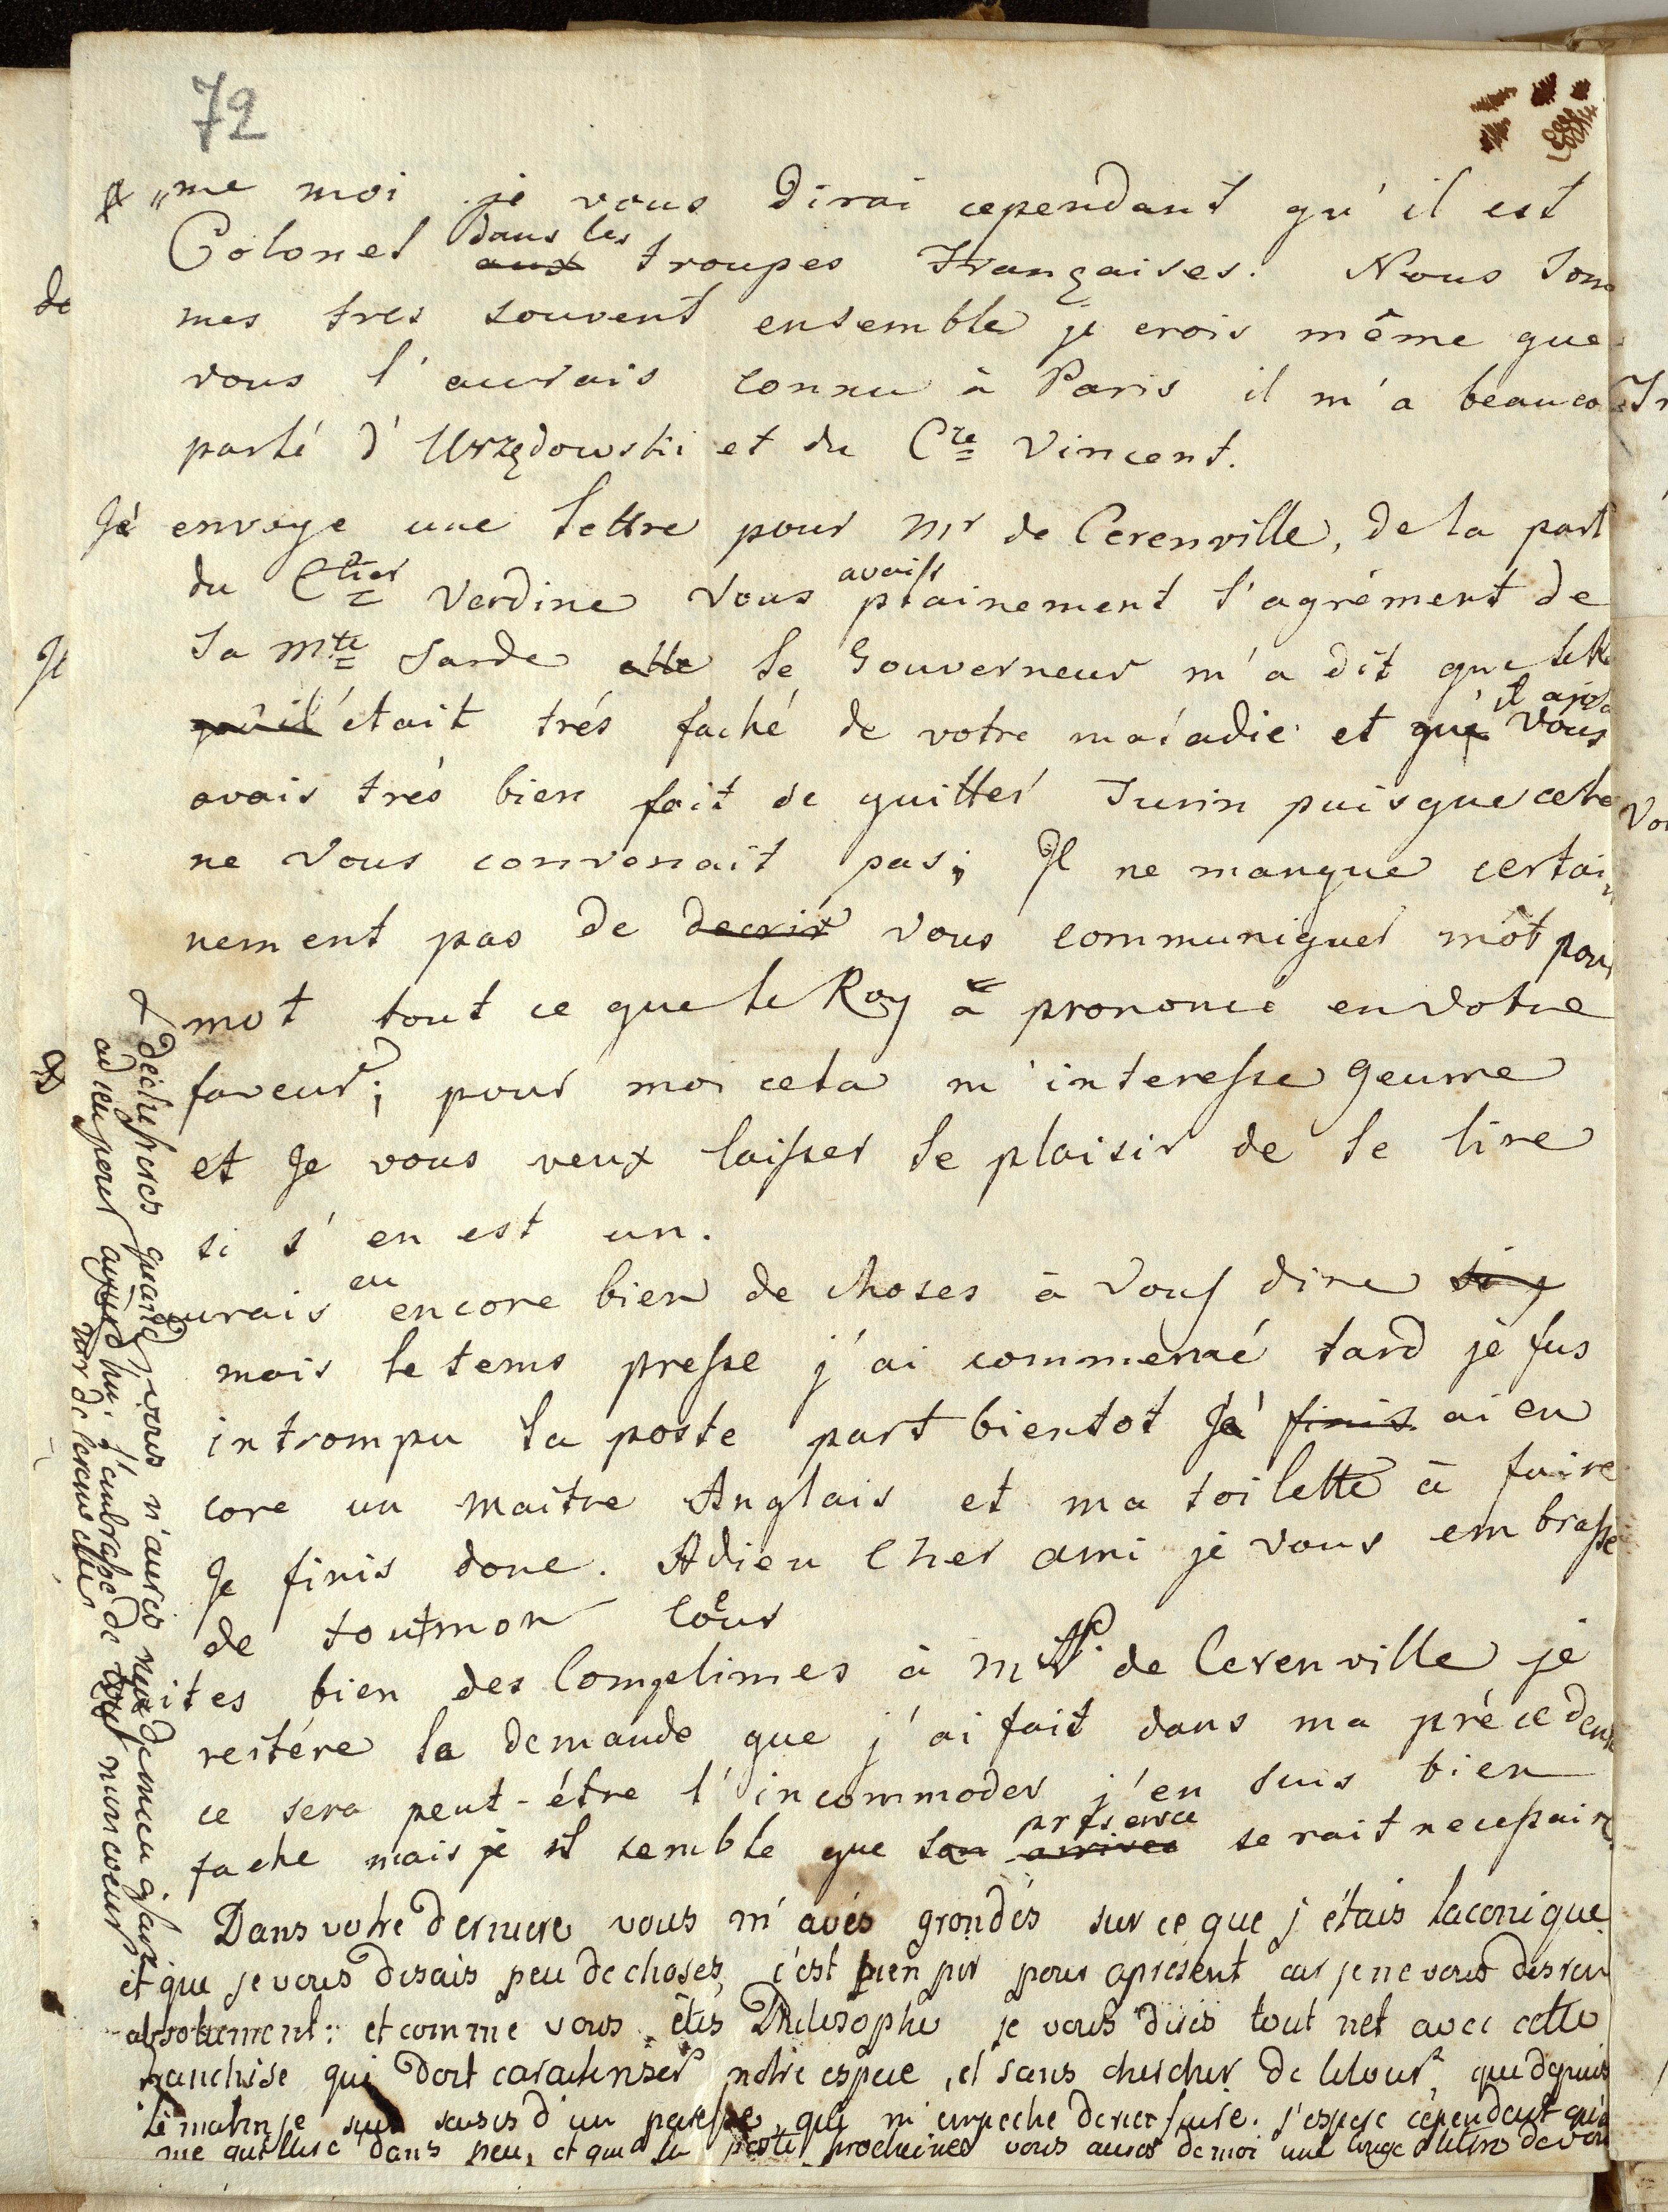 72
„me moi je vous dirai cependant qu'il est
Colonel dans les aux troupes Françaises. Nous som
mes tres souvent ensemble je crois même que
vous l'aurais connu à Paris il m'a beauco
parlé d'Urzędowski et du Cte Vincent.
Jé envoye une lettre pour Mr de Cerenville, de la part
du Clier Verdine vous avais plainement l'agrément de
Sa Mte Sarde elle le Gouverneur m'a dit que le R
qu'il était trés faché de votre maladie et que il ajou vous
avais trés bien fait de quitter Turin puisque cela
ne vous convenait pas; Il ne manque certai
nement pas de decrir vous communiquer môt pour
mot tout ce que le Roy à prononce en votre
faveur; pour moi cela m'interesse
et Je vous veux laisser le plaisir de le lire
si s'en est un.
aurais eu encore bien de choses à vous dire
mais le tems presse j'ai commencé tard je fus
intrompu la poste part bientot Jé finis ai en
core un maitre Anglais et ma toilette à faire
Je finis donc. Adieu cher ami je vous embrasse
de tout mon coeur
ites bien des Complimes à Mr de Cerenville je
reitére la demande que j'ai fait dans ma précedente
ce sera peut-étre l'incommoder j'en suis bien
fache mais je il semble que son arrivee presence serait necessaire
Dans votre derniere vous m'avés grondés sur ce que j'étais laconique
et que je vous disais peu de choses, c'est bien pir pour apresent car je ne vous dis rien
absolument: et comme vous êtes Philosophe je vous dirés tout net avec cette
franchise qui doit caracteriser notre espece, et sans chercher de detour, que depuis
le matin je suis saisis d'un paresse, qui m'empeche de rien faire. j'espere cependant qu'a
me quittera dans peu, et que la poste prochaines vous aures de moi une longe lettre de vou
dechifreres quand vous n'aures rien de mieu
adieu perer aujourdhui. j'embrasse de tout mon coeur
Mr de Cerenville